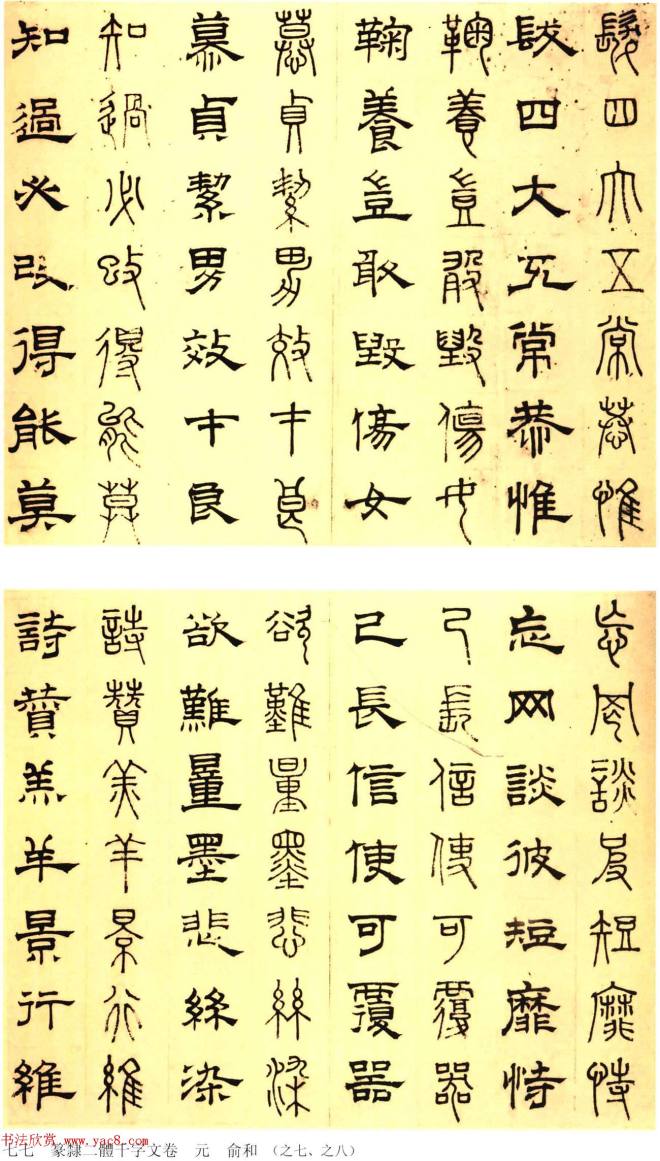 髮四大五常恭惟
髮四大五常恭惟
鞠養豈敢毀傷女
鞠養豈敢毀傷女
慕貞絜男效才良
慕貞絜男效才良
知過必改得能莫
知過必改得能莫
忘罔談彼短靡恃
忘网談彼短靡恃
己長信使可覆器
己長信使可覆器
欲難量墨悲絲染
欲難量墨悲絲染
詩贊羔羊景行維
詩贊羔羊景行維
书法欣赏 www.yac8.com
七七 篆隸二體千字文卷 元 俞和 （之七、之八）